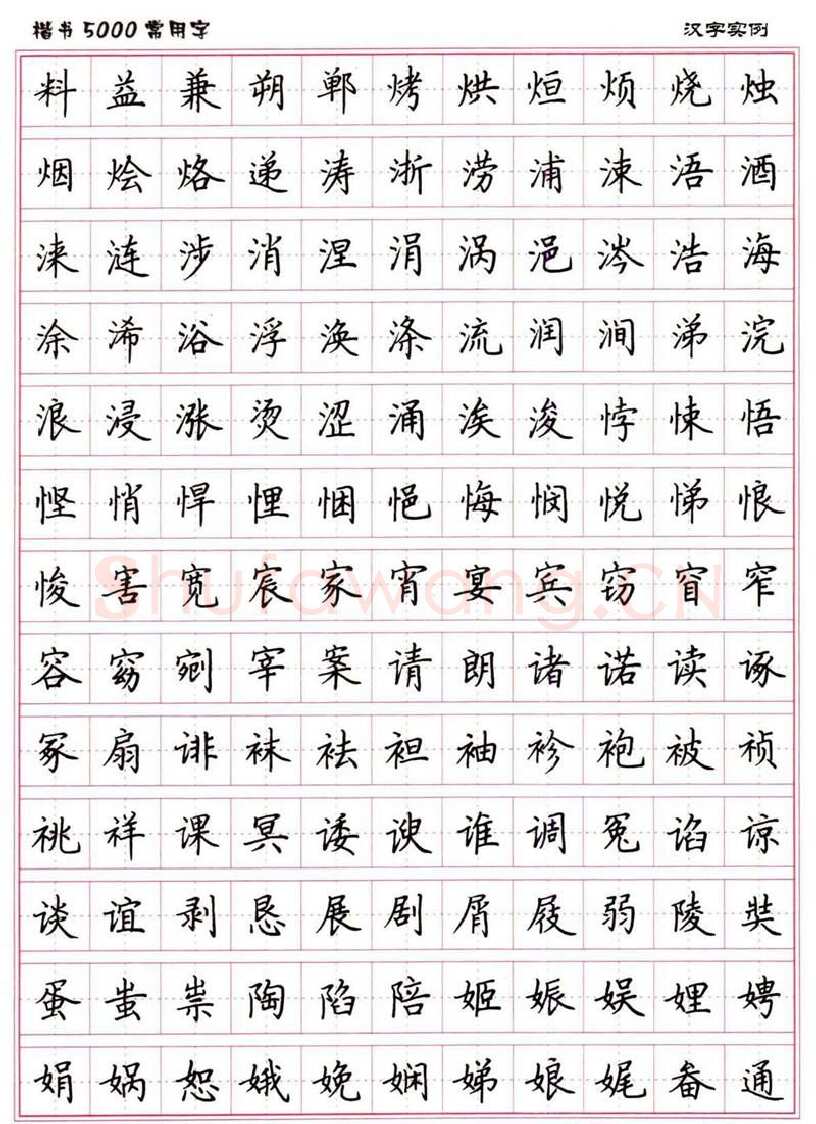 楷书5000常用字 汉字实例
料益兼朔郸烤烘烜烦烧烛
烟烩烙递涛浙涝浦涑浯酒
涞涟涉消涅涓涡浥涔浩海
涂浠浴浮涣涤流润涧涕浣
浪浸涨烫涩涌涘浚悖悚悟
悭悄悍悝悃悒悔悯悦悌悢
悛害宽宸家宵宴宾窃窅窄
容窈剜宰案请朗诸诺读诼
冢扇诽袜祛袒袖袗袍被祯
祧祥课冥诿谀谁调冤谄谅
谈谊剥恳展剧屑屐弱陵奘
蛋蚩祟陶陷陪姬娠娱娌娉
娟娲恕娥娩娴娣娘娓备通
Shufawang.CN